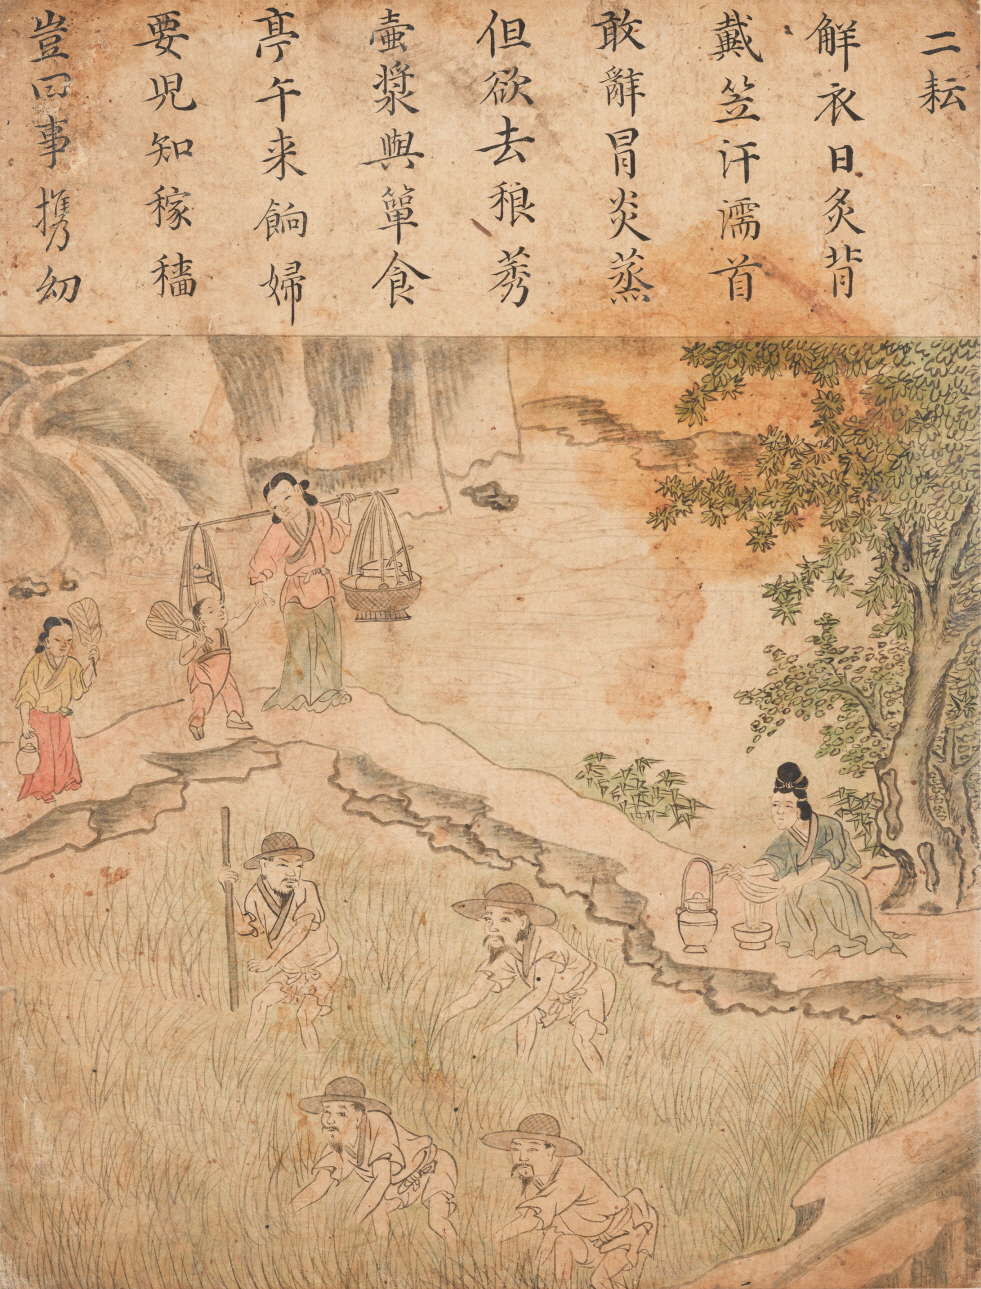 二耘
解衣日炙背
戴笠汗濡首
敢辭冒炎蒸
但欲去稂莠
壷漿與簞食
亭午来餉婦
要児知稼穡
豈曰事携幼